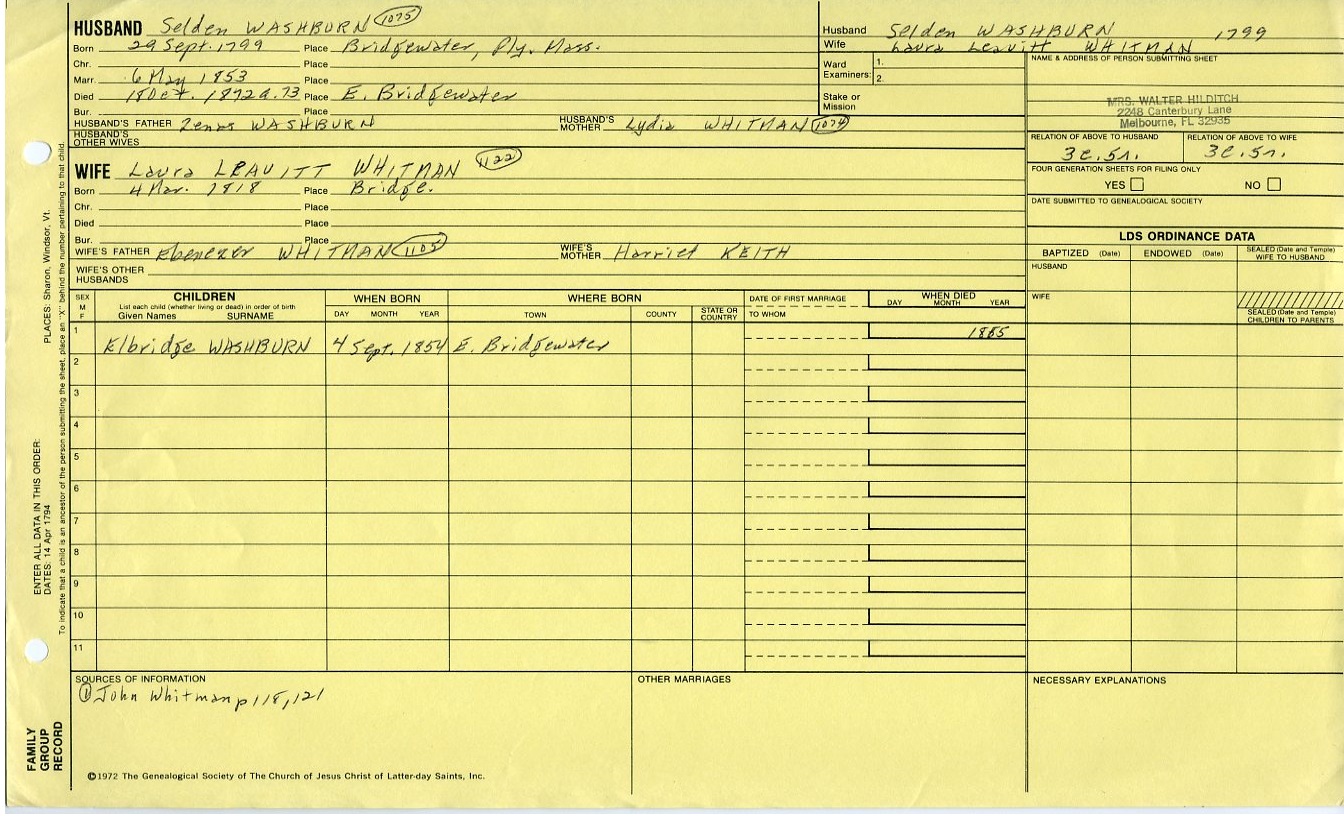 HUSBAND Selden WASHBURN 1075
Born 29 Sept. 1799 Place Bridgewater, Ply. Mass.
Chr. Place
Marr. 6 May 1853 Place
Died 18 Oct. 1872 a. 73 Place E. Bridgewater
Bur. Place
HUSBAND'S FATHER Zenas WASHBURN HUSBAND'S MOTHER Lydia WHITMAN 1074
HUSBAND'S OTHER WIVES
WIFE Laura LEAVITT WHITMAN 1122
Born 4 Mar. 1818 Place Bridge.
Chr. Place
Died Place
Bur. Place
WIFE'S FATHER Ebenezer WHITMAN 1105 WIFE'S MOTHER Harriet KEITH
WIFE'S OTHER HUSBANDS
Husband Selden WASHBURN 1799
Wife Laura Leavitt WHITMAN
Ward Examiners: 1.
2.
Stake or Mission
NAME & ADDRESS OF PERSON SUBMITTING SHEET
MRS. WALTER HILDITCH
2248 Canterbury Lane
Melbourne, FL 32935
RELATION OF ABOVE TO HUSBAND RELATION OF ABOVE TO WIFE
3c.5r. 3c.5r.
FOUR GENERATION SHEETS FOR FILING ONLY
YES NO
DATE SUBMITTED TO GENEALOGICAL SOCIETY
LDS ORDINANCE DATA
BAPTIZED (Date) ENDOWED (Date) SEALED (Date and Temple) WIFE TO HUSBAND
HUSBAND
WIFE
SEALED (Date and Temple) CHILDREN TO PARENTS
SEX M F
CHILDREN
List each child (whether living or dead) in order of birth
Given Names SURNAME
WHEN BORN
DAY MONTH YEAR
WHERE BORN
TOWN COUNTY STATE OR COUNTRY
DATE OF FIRST MARRIAGE
TO WHOM
WHEN DIED
DAY MONTH YEAR
1 Elbridge WASHBURN 4 Sept. 1854 E. Bridgewater 1865
2
3
4
5
6
7
8
9
10
11
SOURCES OF INFORMATION
① John Whitman p 118, 121
OTHER MARRIAGES
NECESSARY EXPLANATIONS
©1972 The Genealogical Society of The Church of Jesus Christ of Latter-day Saints, Inc.
FAMILY GROUP RECORD
ENTER ALL DATA IN THIS ORDER:
DATES: 14 Apr 1794
PLACES: Sharon, Windsor, Vt.
To indicate that a child is an ancestor of the person submitting the sheet, place an "X" behind the number pertaining to that child.